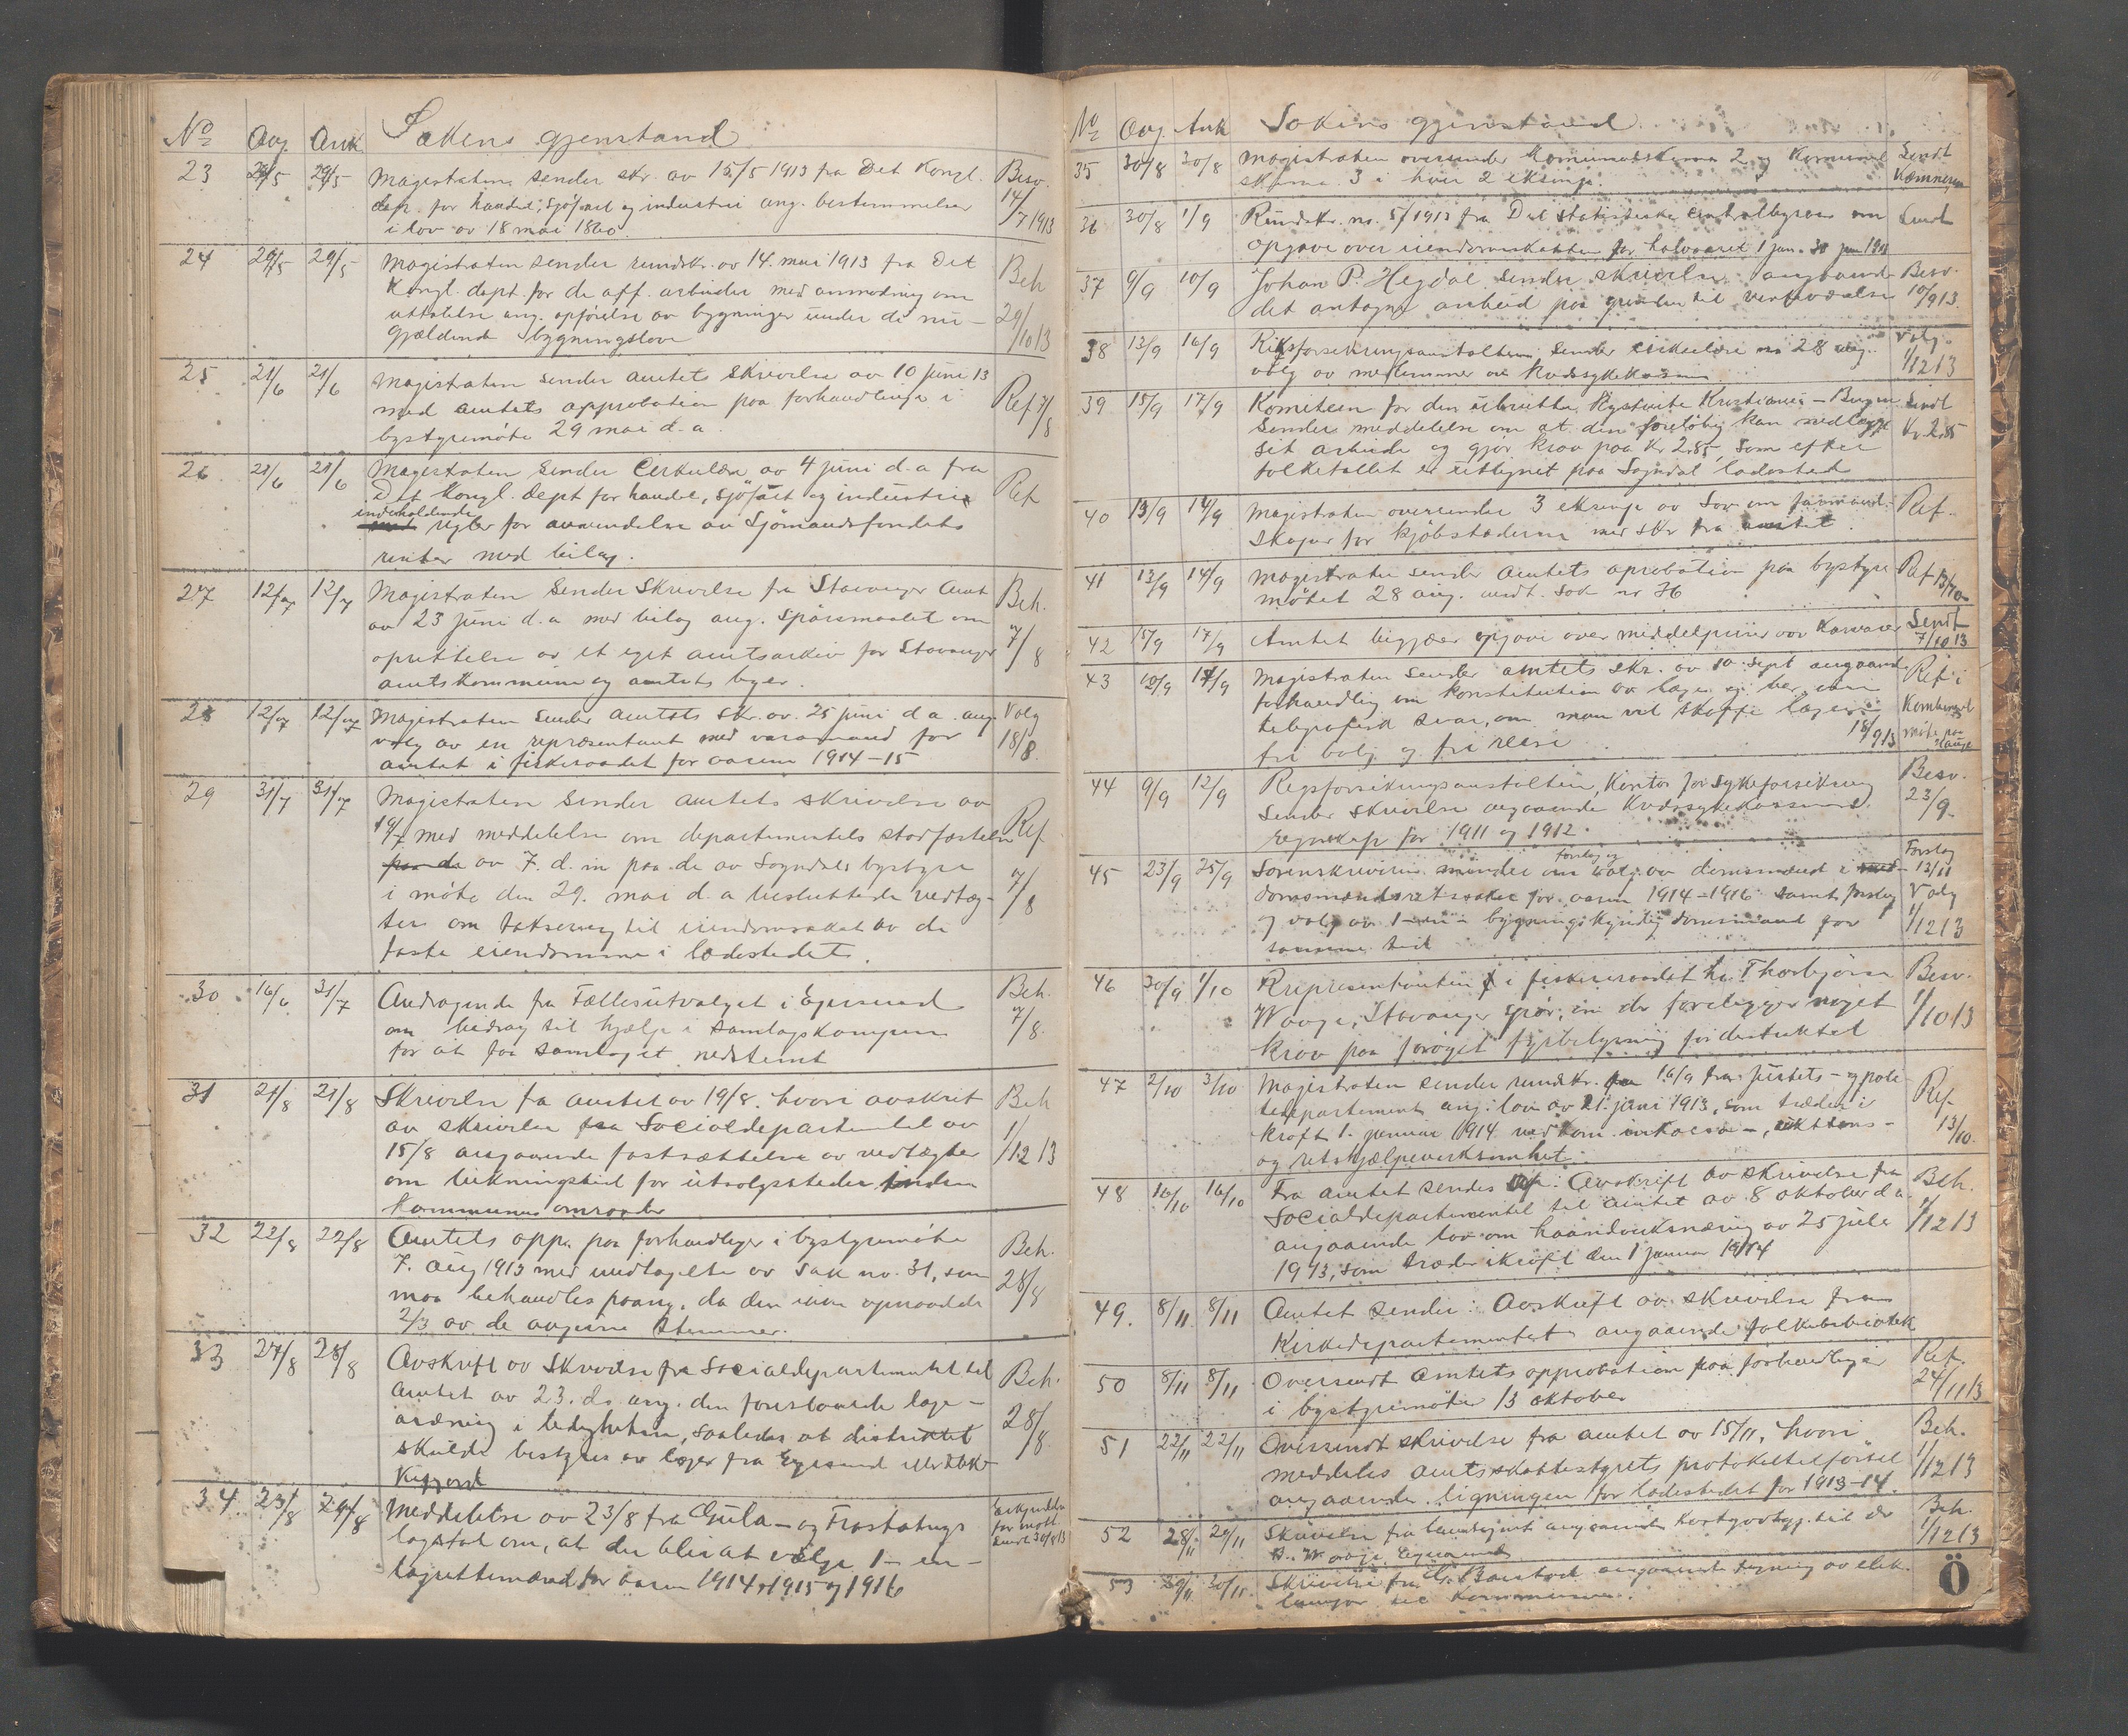 No Avg. Ank Sakens gjenstand
23 29/5 29/5 Magistraten sender skr. av 15/5 1913 fra Det Kongl. Besv.
dep. for handel, sjöfart og industri ang. bestemmelser 14/7 1913
i lov av 18 mai 1860.
24 29/5 29/5 Magistraten sender rundskr. av 14. mai 1913 fra Det Beh
Kongl. dept. for de off. arbeider med anmodning om
uttalelse ang. opförelse av bygninger under de nu- 29/10 13
gjældende bygningslove
25 21/6 21/6 Magistraten sender amtets skrivelse av 10 juni 13
med amtets approbation paa forhandlinger i Ref 7/8
bystyremöte 29 mai d.a.
26 21/6 21/6 Magistraten sender Cirkulære av 4 juni d.a fra
Det Kongl. dept for handel, sjöfart og industri Ref
indeholdende
regler for anvendelse av Sjömandsfondets
renter med bilag.
27 12/7 12/7 Magistraten sender skrivelse fra Stavanger Amt Beh.
av 23 juni d.a med bilag ang. spörsmaalet om
oprettelse av et eget amtsarkiv for Stavanger 7/8
amtskommune og amtets byer.
28 12/7 12/7 Magistraten sender amtets skr. av. 25 juni d.a. ang. Valg
valg av en repræsentant med varamand for 18/8.
amtet i fiskeraadet for aarene 1914-15
29 31/7 31/7 Magistraten sender amtets skrivelse av
19/7 med meddelelse om departementets stadfæstelse Ref
paa de av 7. d.m paa de av Sogndals bystyre
i möte den 29. mai d.a besluttede vedtæg- 7/8
ter om taksering til eiendomsskat av de
faste eiendomme i ladestedet.
30 16/6 31/7 Andragende fra Fællesutvalget i Egersund Beh.
om bidrag til hjælp i samlagskampen 7/8.
for at faa samlaget nedstemt
31 21/8 21/8 Skrivelse fra amtet av 19/8. hvori avskrift Beh
av skrivelse fra Socialdepartementet av
15/8 angaaende fastsættelse av vedtægter 1/12 13
om lukningstid for utsalgssteder inden
kommunens omraader
32 22/8 22/8 Amtets appr. paa forhandlinger i bystyremöte Beh.
7. aug 1913 med undtagelse av sak no. 31, som 28/8
maa behandles paany, da den ikke opnaadde
2/3 av de avgivne stemmer.
33 27/8 28/8 Avskrift av skrivelse fra Socialdepartementet til
Amtet av 23. ds. ang. den forestaaende læge- Beh.
ordning i ledigheten, saaledes at distriktet 28/8
skulde bestyres av læger fra Egersund eller Flekke-
fjord
34 23/8 29/8 Meddelelse av 23/8 fra Gula- og Frostatings
lagstol om, at der blir at vælge 1-en-
lagrettemænd for aaren 1914, 1915 og 1916
No Avg. Ank Sakens gjenstand
35 30/8 30/8 Magistraten oversender Komunalskema 2 og Komunal Sendt
skema 3 i hver 2 eksempl. Kæmneren
36 30/8 1/9 Rundskr. no. 5/1913 fra Det statistiske centralbyraa om Sendt
opgave over eiendomsskatten for halvaaret 1 jan.-30 juni 1913
37 9/9 10/9 Johan P. Hegdal sender skrivelse angaaende Besv.
det antagne arbeid paa 10/9 13.
38 13/9 16/9 Riksforsikringsanstalten sender cirkulære no 28 ang. Valg.
valg av medlemmer av kredssykekassen 1/12 13
39 15/9 17/9 Komiteen for den Kystruite Kristiania-Bergen Sendt
sender meddelelse om at den foreløbig kan nedlægge Kr. 2.85
sit arbeide og gjör krav paa Kr 2.85, som efter
folketallet er utlignet paa Sogndal ladested
40 13/9 14/9 Magistraten oversender 3 eksempl. av Lov om formand- Ref.
skaper for kjöbstæderne med skr. fra amtet.
41 13/9 14/9 Magistraten sender amtets aprobation paa bystyre Ref 13/10
mötet 28 aug. undt. sak nr 36
42 15/9 17/9 Amtet begjærer opgave over middelpriser Sendt
7/10 13
43 10/9 14/9 Magistraten sender amtets skr. av 10 sept angaaende Ref i
forhandling om konstitution av læge og ber om
telegrafisk svar, om man vil skaffe lægen
fri bolig og fri reise 16/9 13
44 9/9 12/9 Rigsforsikringsanstalten, Kontor for sykeforsikring Besv.
sender skrivelse angaaende Kredssykekassens 23/9.
regnskap for 1911 og 1912.
45 23/9 25/9 forslag og Forslag
Sorenskriveren minder om valg av domsmænd i 13/11
domsmandsretssaker for aaren 1914-1916 samt forslag Valg
og valg av 1-en- bygningskyndig domsmand for 1/12 13
samme tid
46 30/9 1/10 Representanten i fiskeraadet hr. Thorbjörn Besv.
Waage, Stavanger spör, om der foreligger noget 1/10 13
krav paa foröget fyrbelysning for distriktet
47 2/10 3/10 Magistraten sender rundskr. 16/9 fra Justits- og poli
tidepartement ang. lov av 21. juni 1913, som træder i Ref
kraft 1. januar 1914 vedkom. inkasso-, auktions- 13/10.
og retshjælpevirksomhet.
48 16/10 16/10 Fra amtet sendes Avskrift av skrivelse fra Beh.
Socialdepartementet til Amtet av 8 oktober d.a. 1/12 13
angaaende lov om haandverksnæring av 25 juli
1913, som træder i kraft den 1 januar 1914
49. 8/11 8/11 Amtet sender: Avskrift av skrivelse fra
Kirkedepartementet angaaende folkebibliotek
50 8/11 8/11 Oversendt amtets approbation paa forhandlinger Ref.
i bystyremöte 13 oktober 24/11 13
51 22/11 22/11 Oversendt skrivelse fra amtet av 15/11, hvori Beh.
meddeles amtsskattestyrets protokoltilförsel 1/12 13
angaaende ligningen for ladestedet for 1913-14.
52 28/11 29/11 Skrivelse fra angaaende Beh.
Waage, Egersund 1/12 13
53 29/11 30/11 Skrivelse fra angaaende tegning av elek.
kommunen.
Ö